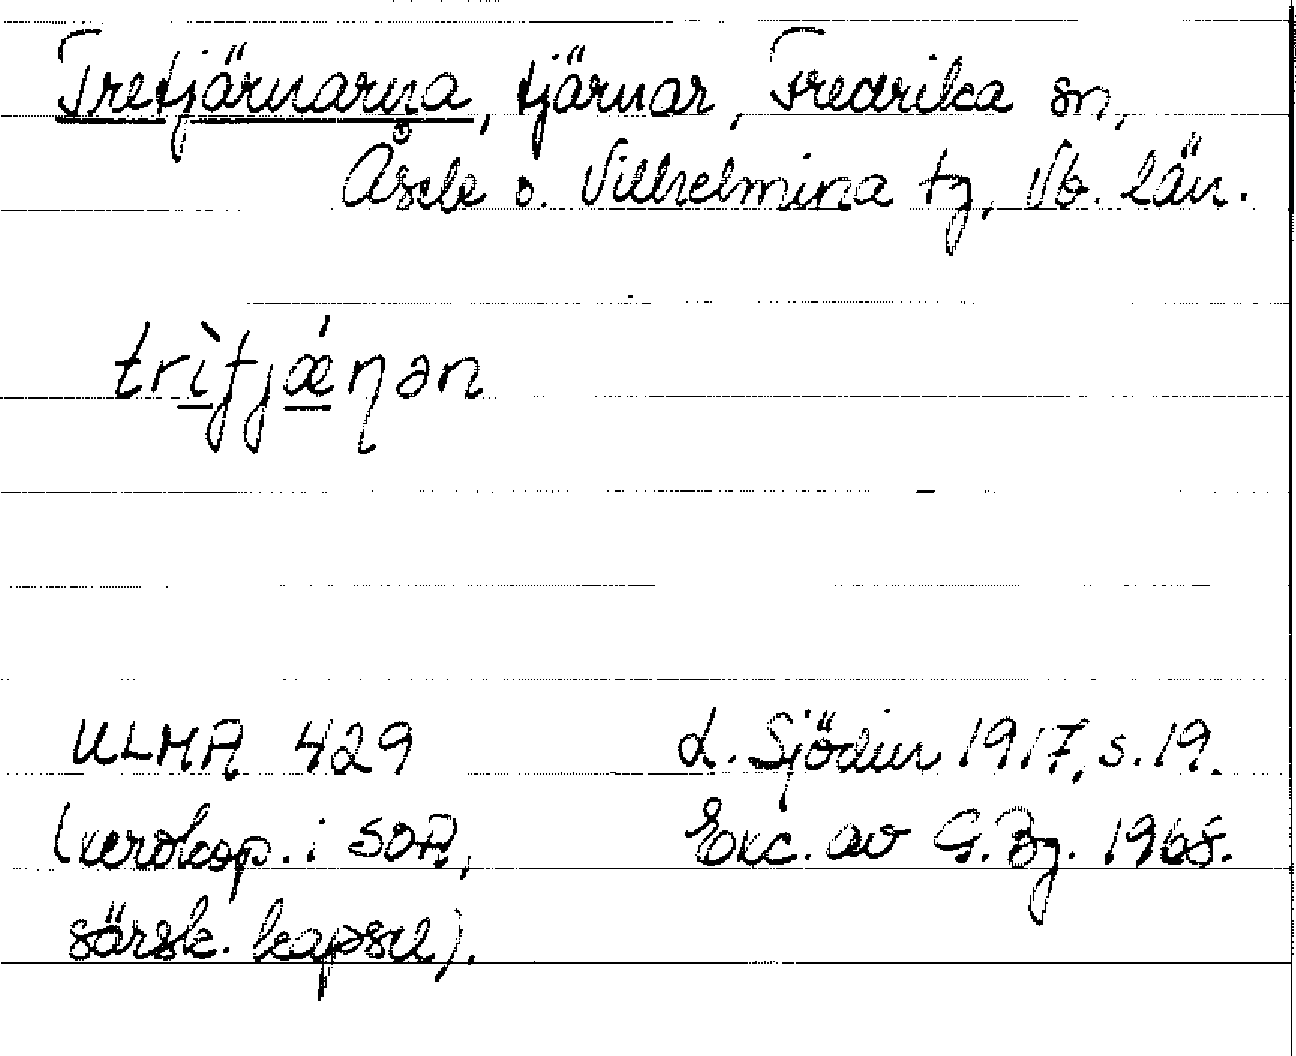 Tretjärnarna, tjärnar, Fredrika sn,
Åsele o. Vilhelmina tg, Vb. län.
trìtjǽɳən
ULMA 429
(xerokop. i SOA,
särsk. kapsel).
L. Sjödin 1917, s. 19.
Exc. av G. Bg. 1968.